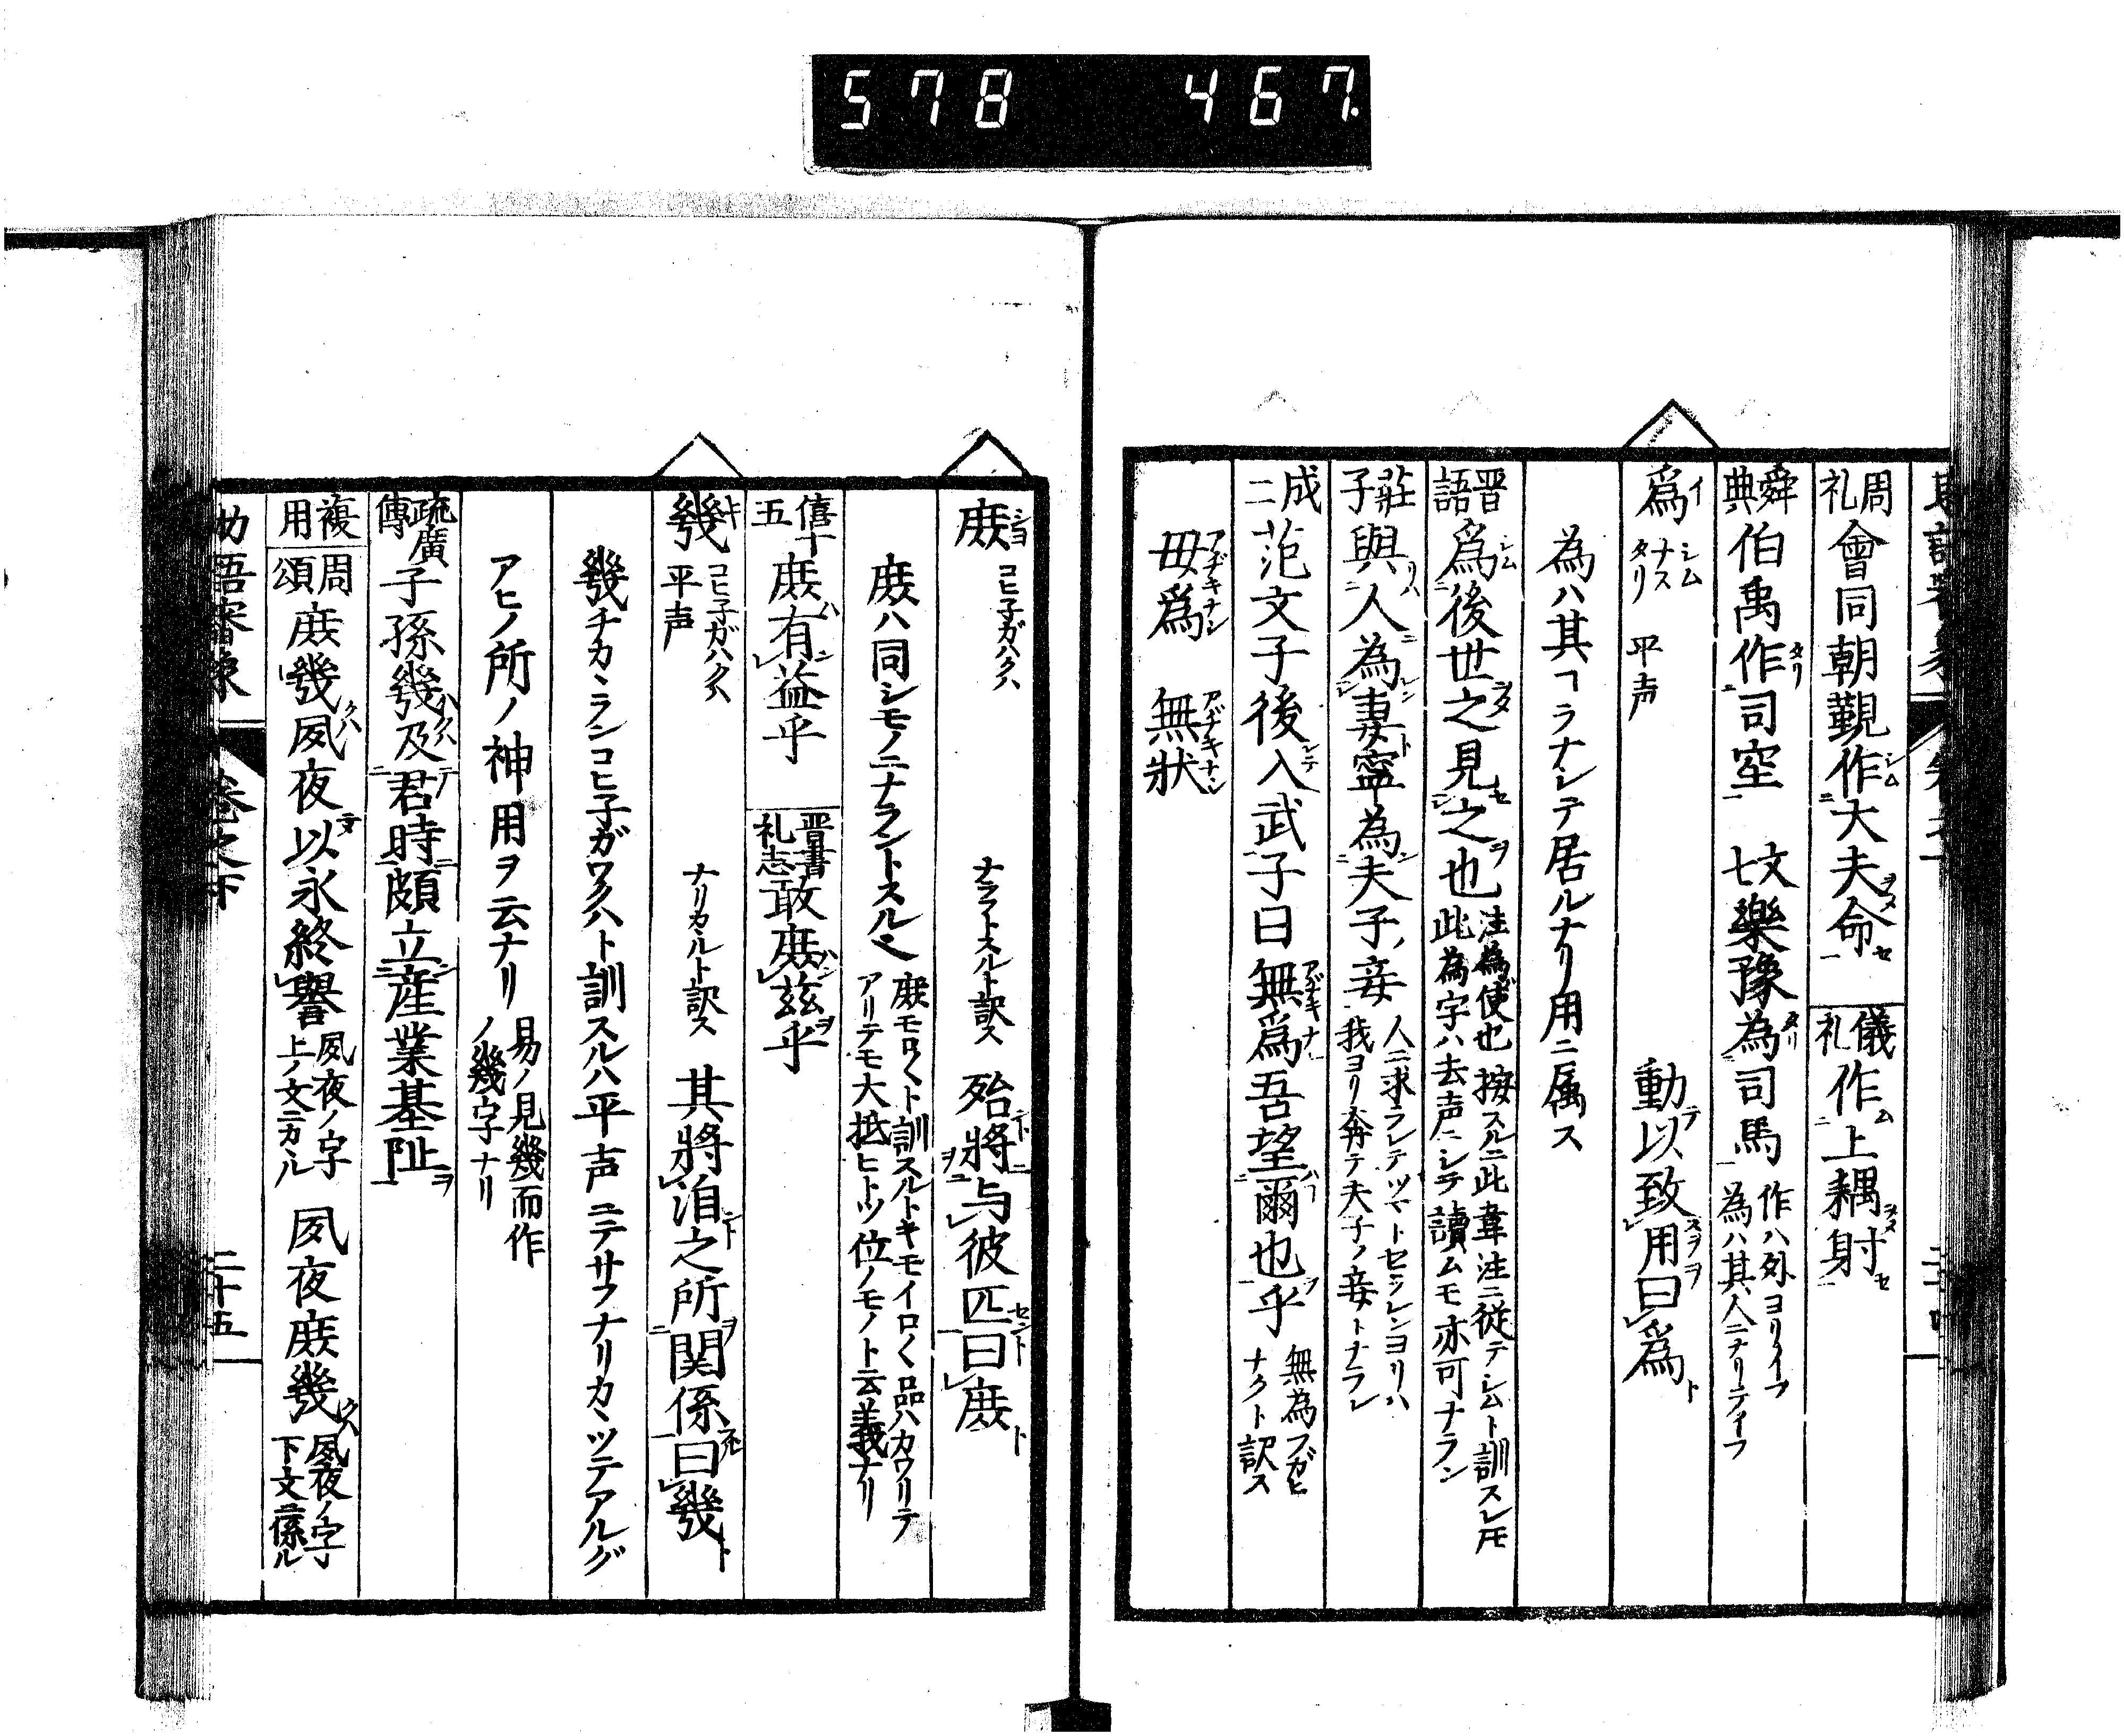 578 467.
周礼 會同朝覲作大夫命 儀礼 作上耦射
舜典 伯禹作司空 文七 樂豫為司馬 作ハ外ヨリイフ 為ハ其人ニナリテイフ
爲 イ シム ナス タリ 平声 動以致用曰爲
為ハ其ヿヲナシテ居ルナリ用ニ属ス
晋語 爲後世之見之也 注為使也按スルニ此韋注ニ従テシムト訓スレ𪜈 此為字ハ去声ニシテ讀ムモ亦可ナラン
莊子 與人為妻寧為夫子妾 人ニ求ラレテツマトセラレンヨリハ 我ヨリ奔テ夫子ノ妾トナラン
成二 范文子後入武子曰無爲吾望爾也乎 無為フガヒ ナクト訳ス
毋爲 アヂキナシ 無狀 アヂキナシ
庻 シヨ コヒ子ガハクハ ナラフトスルト訳ス 殆將与彼匹曰庻
庻ハ同シモノニナラントスル也 庻モロ〱ト訓スルトキモイロ〱品ハカワリテ アリテモ大抵ヒトツ位ノモノト云義ナリ
僖十五 庻有益乎 晋書礼志 敢庻兹乎
幾 キ コヒ子ガハクハ 平声 ナリカヽルト訳ス 其將洎之所関係曰幾
幾チカヽランコヒ子ガワクハト訓スルハ平声ニテサフナリカヽツテアルグ
アヒノ所ノ神用ヲ云ナリ 易ノ見幾而作 ノ幾字ナリ
疏廣傳 子孫幾及君時頗立産業基阯
複用 周頌 庻幾夙夜以永終譽 夙夜ノ字 上ノ文ニカヽル 夙夜庻幾 夙夜ノ字 下文ニ係ル
卷之下 二十五